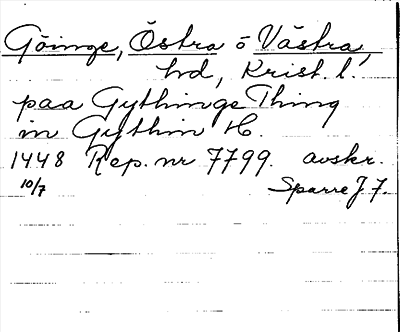 Göinge, Östra o Västra,
hd, Krist. l.
paa Gythinge Thing
in Gythin H.
1448 Rep. nr 7799. avskr.
10/7 Sparre J 7.